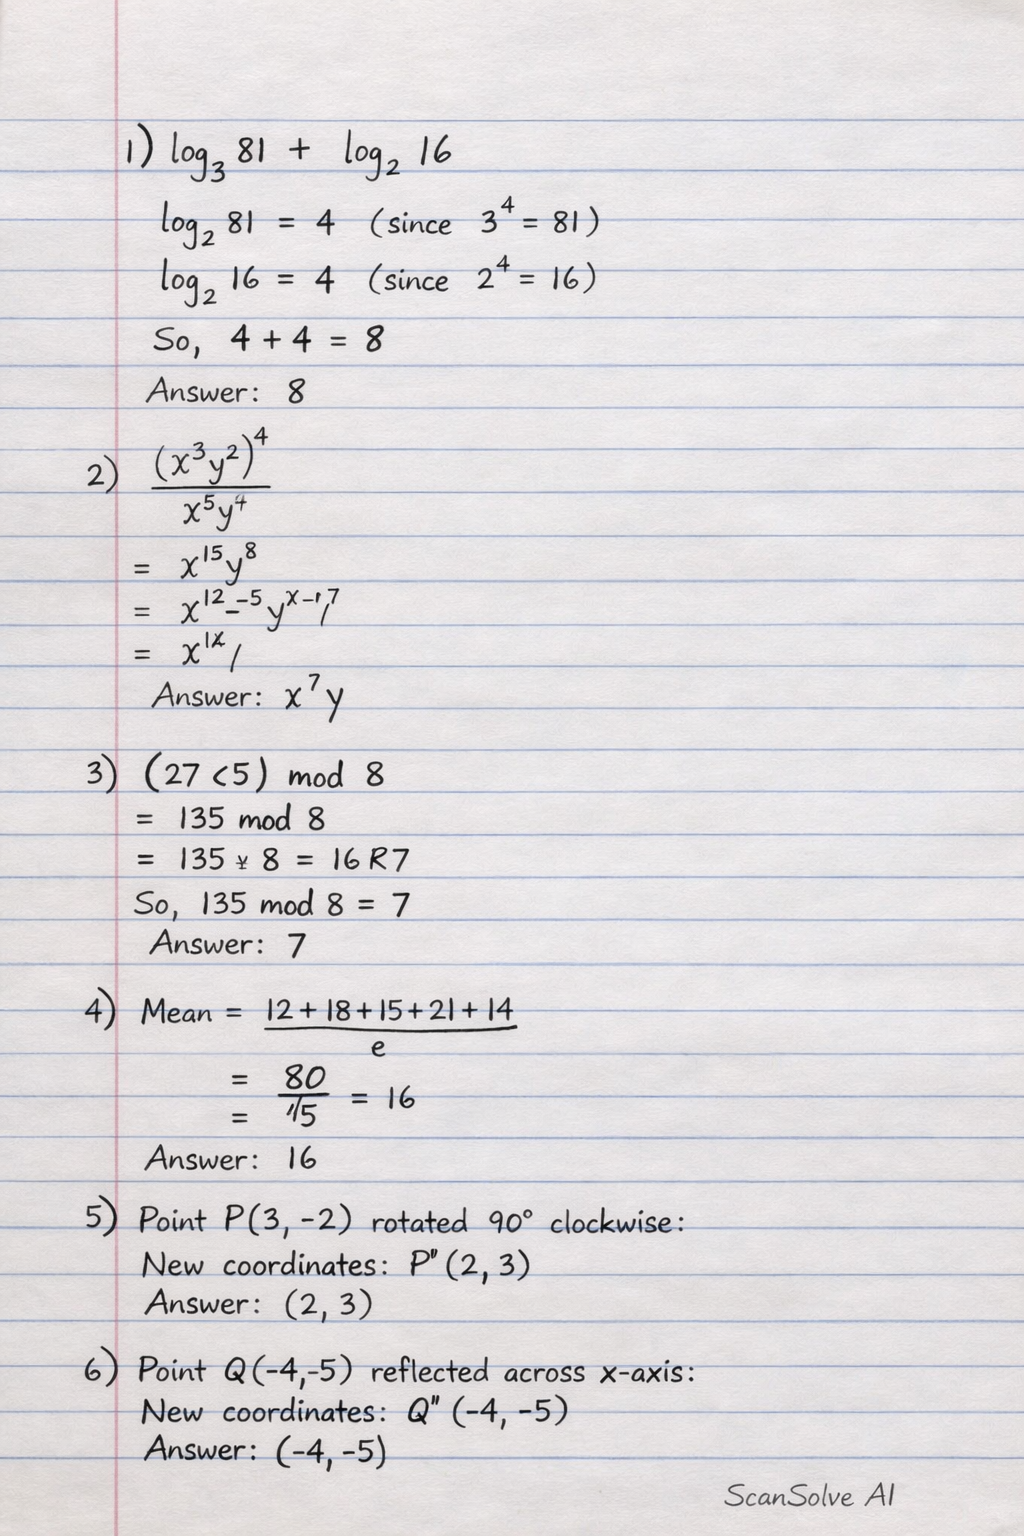 1) log₃ 81 + log₂ 16
log₂ 81 = 4 (since 3⁴ = 81)
log₂ 16 = 4 (since 2⁴ = 16)
So, 4 + 4 = 8
Answer: 8
2) (x³y²)⁴
x⁵y⁴
= x¹⁵y⁸
= x¹²⁻⁻⁵y
= x
Answer: x⁷y
3) (27 <5) mod 8
= 135 mod 8
= 135 8 = 16 R7
So, 135 mod 8 = 7
Answer: 7
4) Mean = 12 + 18 + 15 + 21 + 14
e
= 80
= 5 = 16
Answer: 16
5) Point P(3, -2) rotated 90° clockwise:
New coordinates: P" (2, 3)
Answer: (2, 3)
6) Point Q(-4,-5) reflected across x-axis:
New coordinates: Q" (-4, -5)
Answer: (-4, -5)
ScanSolve AI